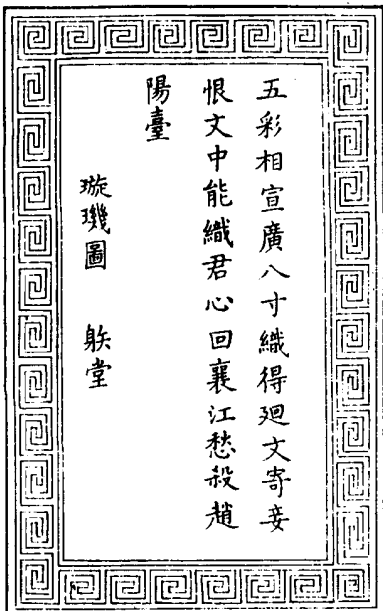 五彩相宣廣八寸織得廻文寄妾
恨文中能織君心回襄江愁殺趙
陽臺
璇璣圖　躲堂